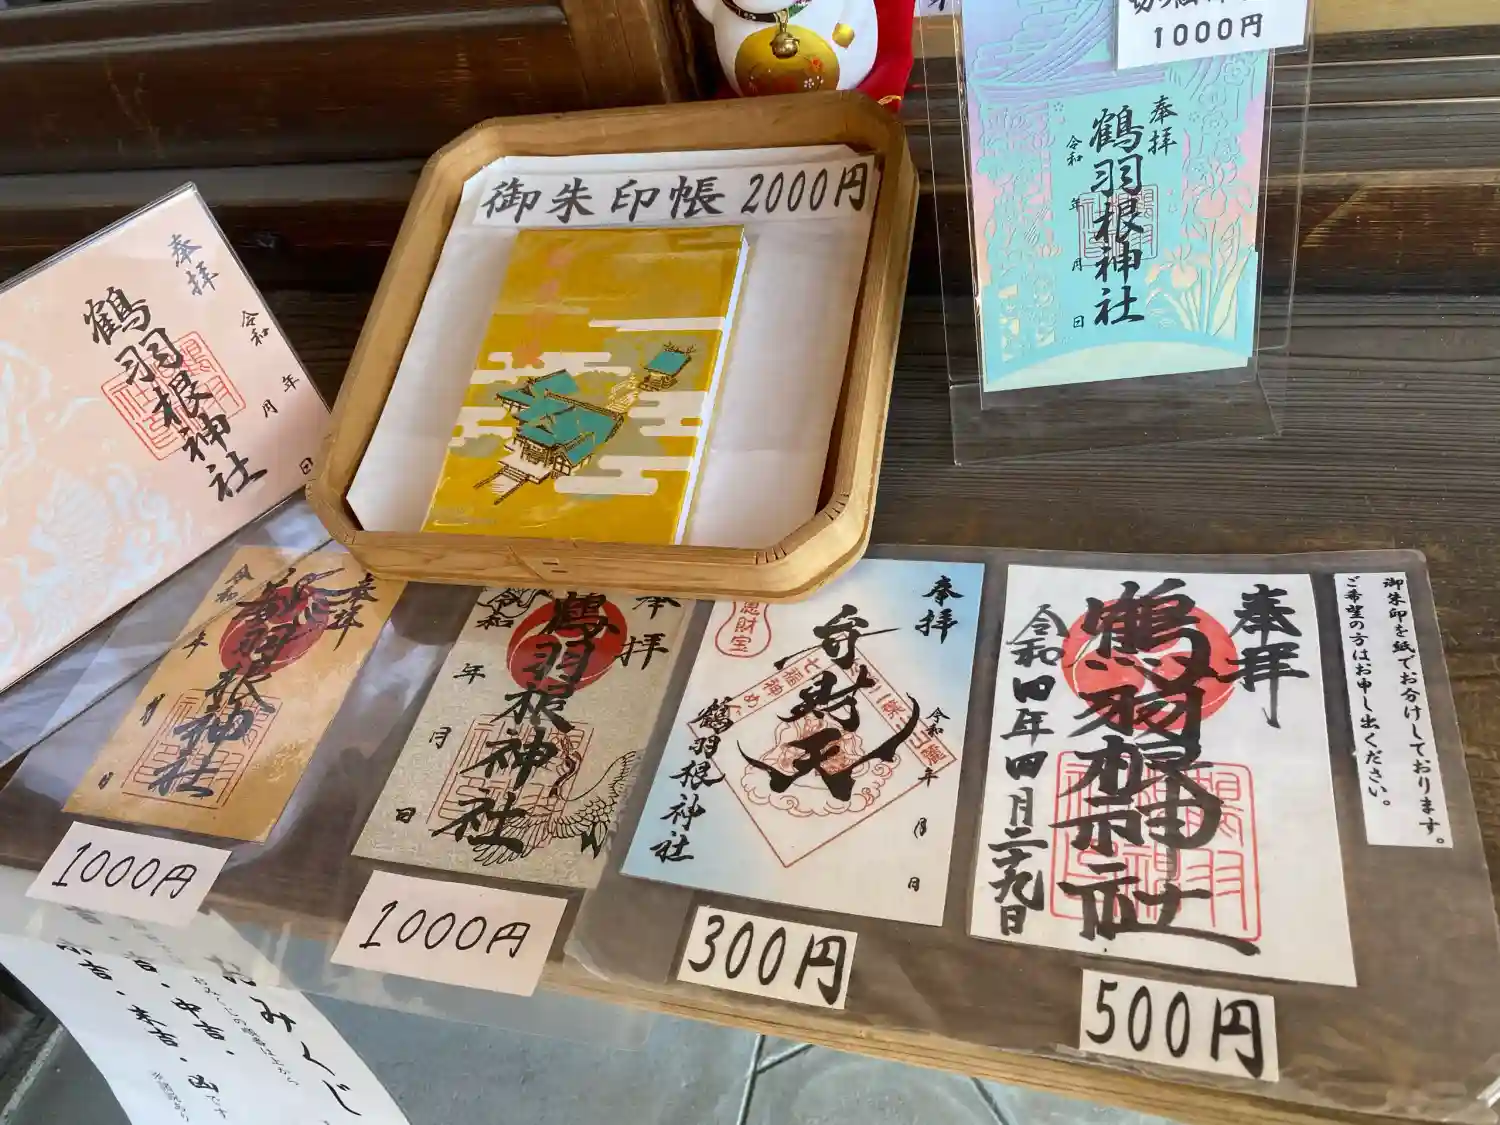 1000円
奉拝
鶴羽根神社
令和
年
月
日
御朱印帳 2000円
奉拝
鶴羽根神社
令和
年
月
日
奉拝
鶴羽根神社
令和
年
月
日
1000円
奉拝
鶴羽根神社
令和
年
月
日
1000円
奉拝
弁財天
七福神め
二葉山麓
財宝
鶴羽根神社
令和
年
月
日
300円
奉拝
鶴羽根神社
令和四年四月二十九日
500円
御朱印を紙でお分けしております。
ご希望の方はお申し出ください。
おみくじ